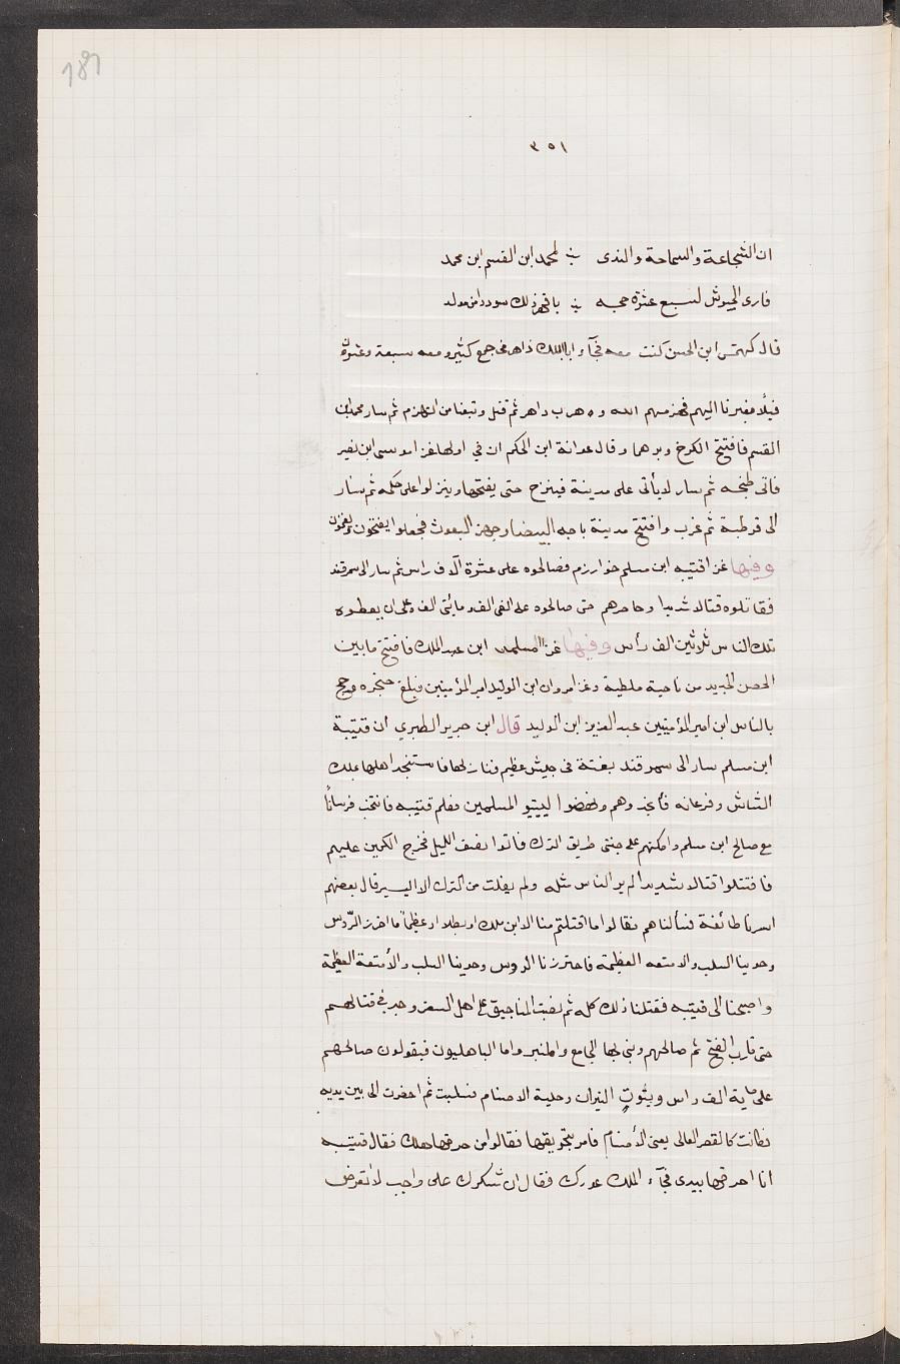 181
٣٥١
ان الشجاعة والسماحة والندى لمحمد ابن القسم ابن محمد
قاد الجيوش لسبع عشرة حجه يا قرب ذلك سوددا من مولد
قال كهمس ابن الحسن كنت معه فجآءنا الملك داهر فى جمع كثير ومعه سبعة وعشرون
فيلًا فعبرنا اليهم فهزمهم الله وهرب داهر ثم قتل وتبعنا من انهزم ثم سار محمد ابن
القسم فافتتح الكرخ وبرهما وقال عوانة ابن الحكم ان في اولها غزا موسى ابن نصير
فاتى طنجه ثم سار لا يأتى على مدينة فيبرح حتى يفتحها وينزلوا على حكمه ثم سار
الى قرطبة ثم غرب وافتتح مدينة باجه البيضا وجهز البعوث فجعلوا يفتحون ويغزون
وفيها غزا قتيبه ابن مسلم خوارزم فصالحوه على عشرة آلاف راس ثم سار الى سمرقند
فقاتلوه قتالا شديدا وحاصرهم حتى صالحوه على الفى الف ومائتى الف وعلى ان يعطوه
تلك الناس ثلاثين الف رأس وفيها غزا المسلمه ابن عبد الملك فافتتح ما بين
الحصن الجديد من ناحية ملطية وغزا مروان ابن الوليد امير المؤمنين فبلغ حنجره وحج
بالناس ابن امير المؤمنين عبد العزيز ابن الوليد قال ابن جرير الطبري ان قتيبة
ابن مسلم سار الى سمرقند بغتة فى جيش عظيم فنازلها فاستنجد اهلها بملك
الشاش وفرغانه فأنجدوهم ونهضوا ليبيتو المسلمين فعلم قتيبه فانتخب فرسانًا
مع صالح ابن مسلم واكمنهم على جنبتى طريق الترك فاتوا نصف الليل فخرج الكمين عليهم
فاقتتلوا قتالا شديدا لم ير الناس مثله ولم يفلت من الترك الا اليسير قال بعضهم
اسرنا طائفة فسألناهم فقالوا ما اقتلتم منا الا ابن ملك او بطلا او عظيمًا فاحتزز الرّوس
وحوينا السلب والامتعه العظيمة فاحترزنا الروس وحوينا السلب والأمتعة العظيمة
واصبحنا الى قتيبه فقتلنا ذلك كله ثم نصبت المناجيق على اهل السغد وجد فى قتالهم
حتى قارب الفتح ثم صالحهم وبنى بها الجامع والمنبر واما الباهليون فيقولون صالحهم
على ماية الف راس وبيُوتِ النيران وحلية الاصنام فسلبت ثم احضرت الى بين يديه
فكانت كالقصر العالى يعنى الأصنام فامر بتحريقها فقالوا من حرقها هلك فقال قتيبه
انا احرقها بيدى فجآء الملك غورك فقال ان شكرك على واجب لا تعرض